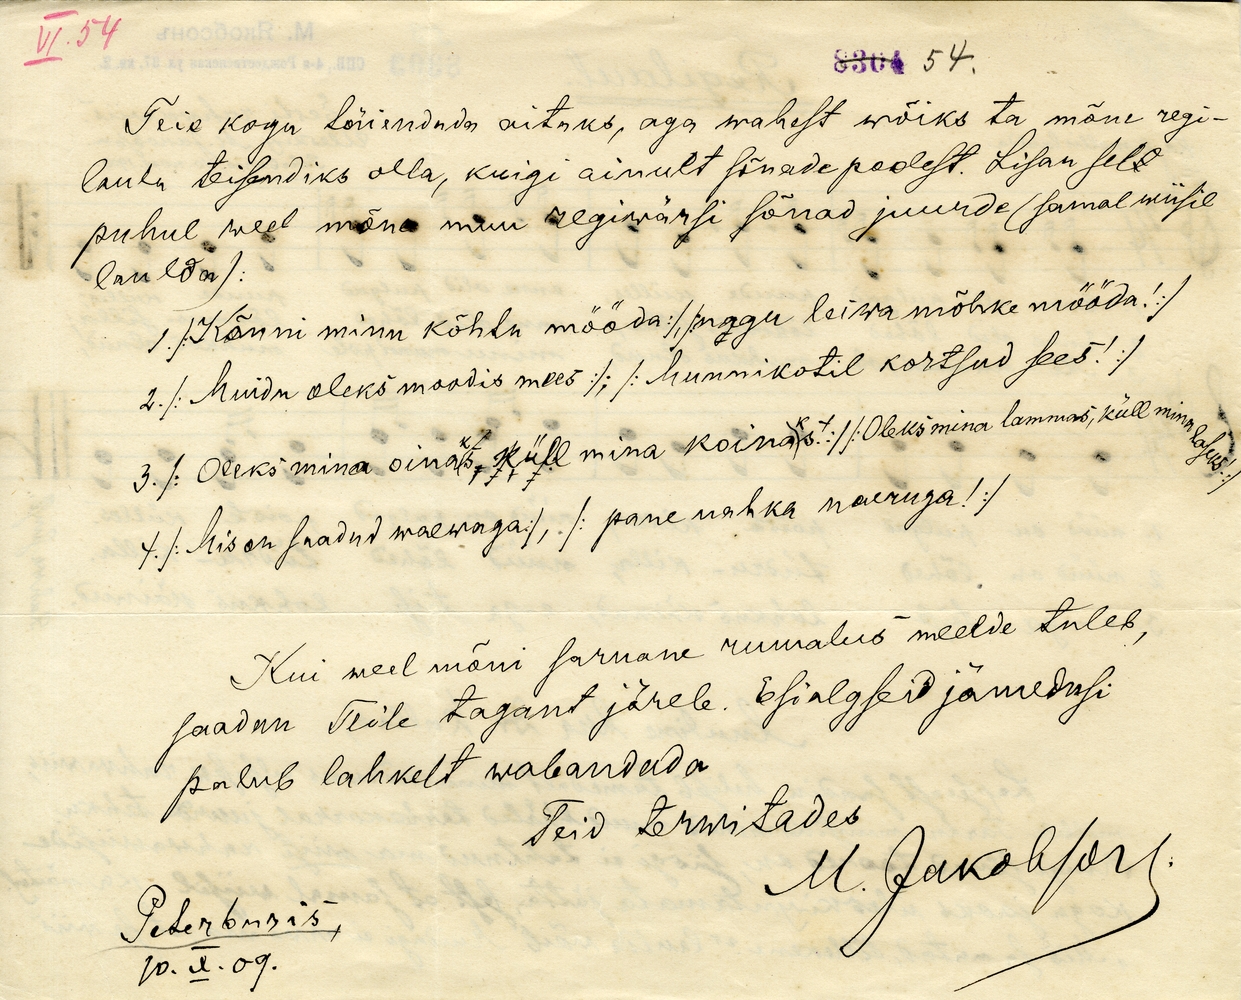 VI. 54
8304 54.
Teie kogu täiendada aitaks, aga wahest wõiks ta mõne regi-
laulu teisendiks olla, kuigi ainult sõnade poolest. Lisan sel
puhul weel mõne muu regiwärsi sõnad juurde (samal wiisil
laulda):
1. /: Kõnni minu kõhtu mööda :/, /: nggu leiwa mõhke mööda! :/
2. /: Muidu oleks moodis mees :/; /: Munnikotil kortsud sees! :/
3. /: Oleks mina oinas, küll mina koinaks! :/ /: Oleks mina lammas, küll mina laseks! :/
4. /: Mis on saadud waewaga :/, /: pane nahka naeruga! :/
Kui weel mõni sarnane rumalus meelde tuleb,
saadan Teile tagant järele. Esialgseid jämedusi
palub lahkelt wabandada
Teid terwitades
M. Jakobson.
Peterburis,
10. X. 09.